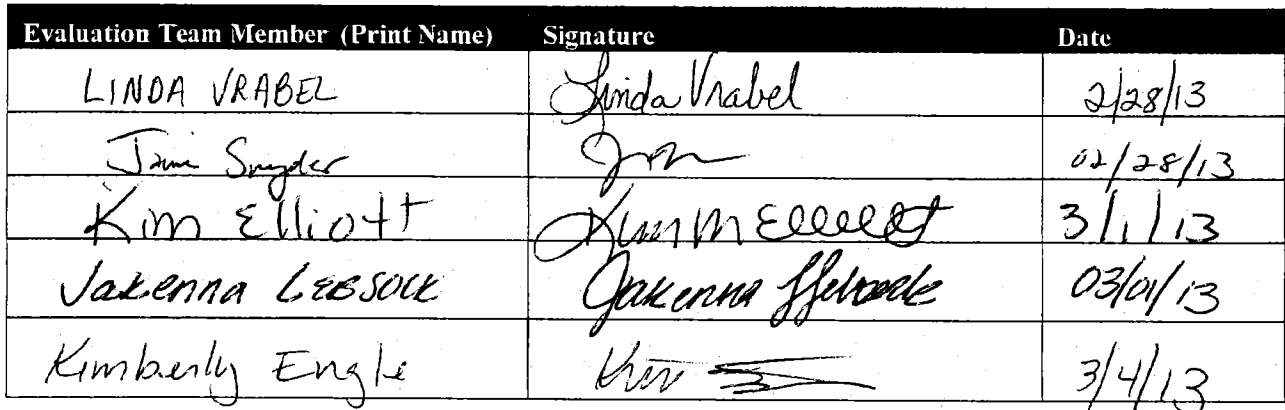 Evaluation Team Member (Print Name) Signature Date
LINDA VRABEL Linda Vrabel 2/28/13
Jaime Snyder 02/28/13
Kim Elliott Kim M Elliott 3/1/13
Jakenna Lebsock Jakenna Lebsock 03/01/13
Kimberly Engle Kim 3/4/13